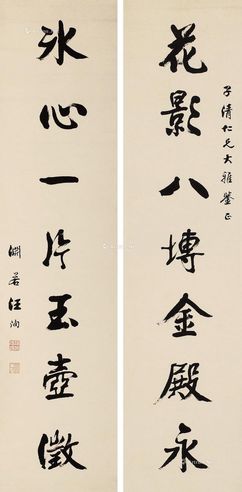 花影八塼金殿永
子清仁兄大雅鑒正
氷心一片玉壺澂
淵若汪洵